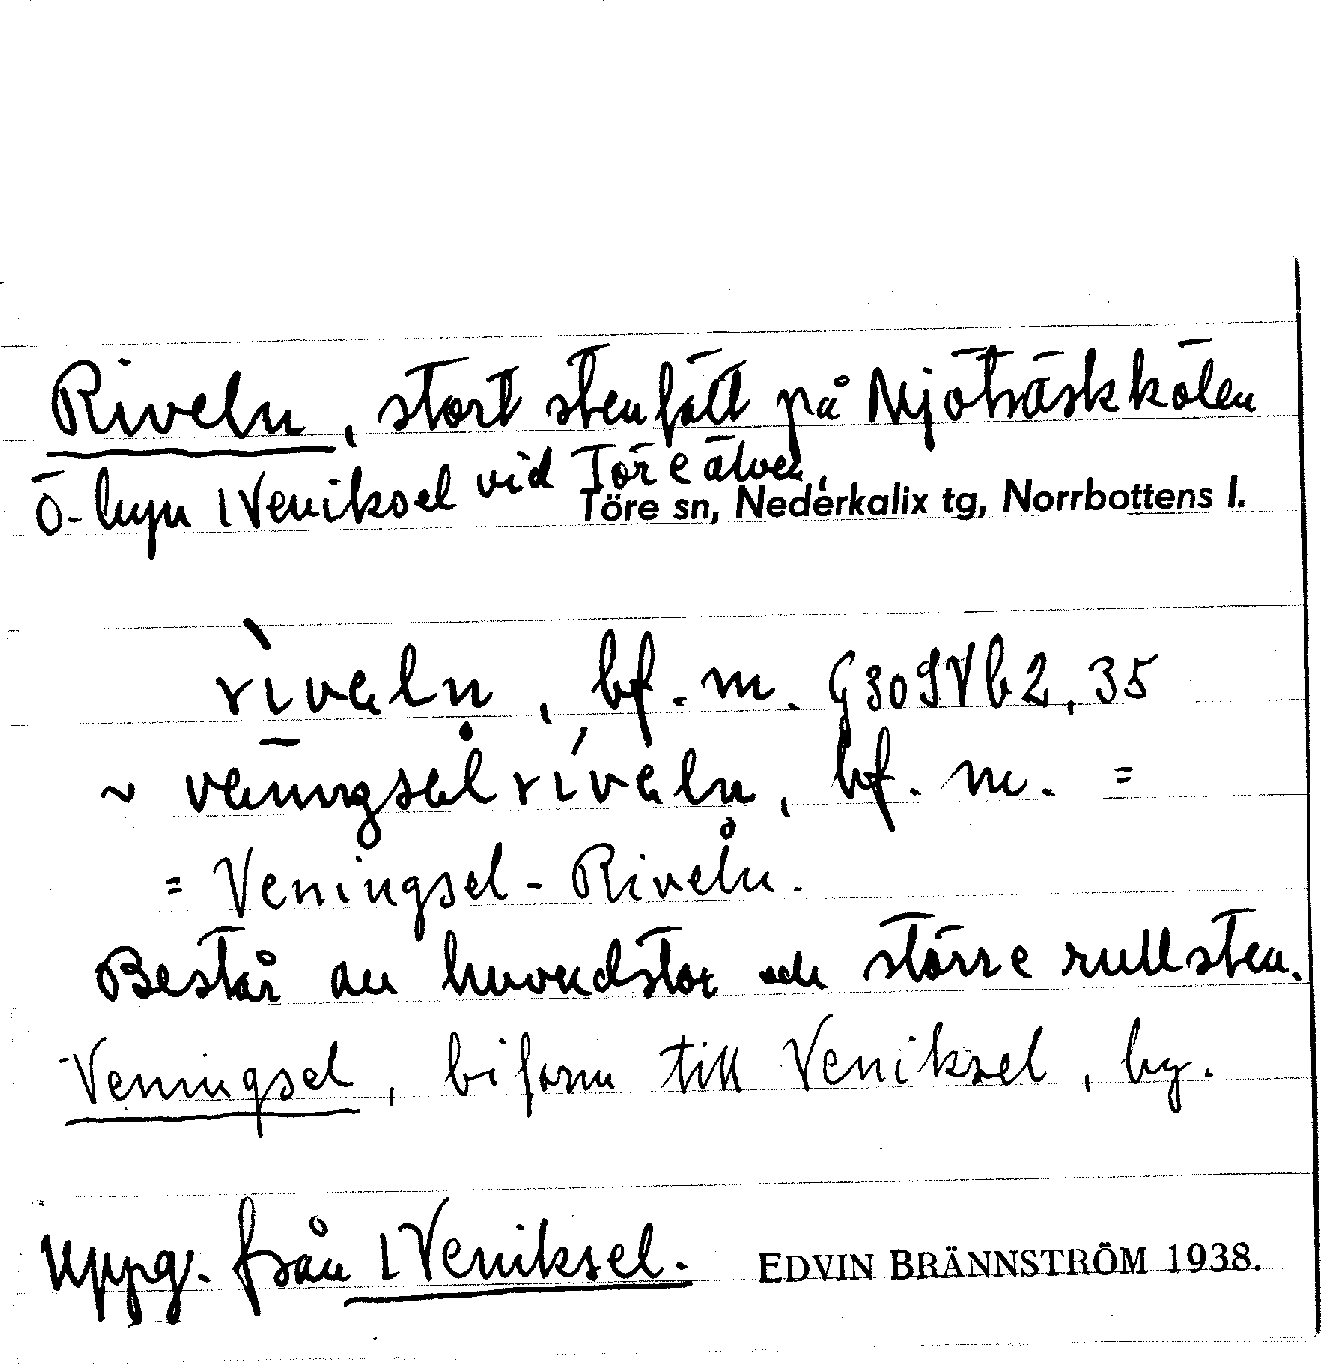 Riveln, stort stenfält på Mjöträskkölen
Ö- byn 1 Veniksel vid Töre älven,
Töre sn, Nederkalix tg, Norrbottens l.
rìveln̥, bf. m. G309Vb2, 35
~ veningselríveln̥, bf. m. =
= Veningsel-Riveln.
Består av huvudstor och större rullsten.
Veningsel, biform till Veniksel, by.
Uppg. från 1 Veniksel. EDVIN BRÄNNSTRÖM 1938.